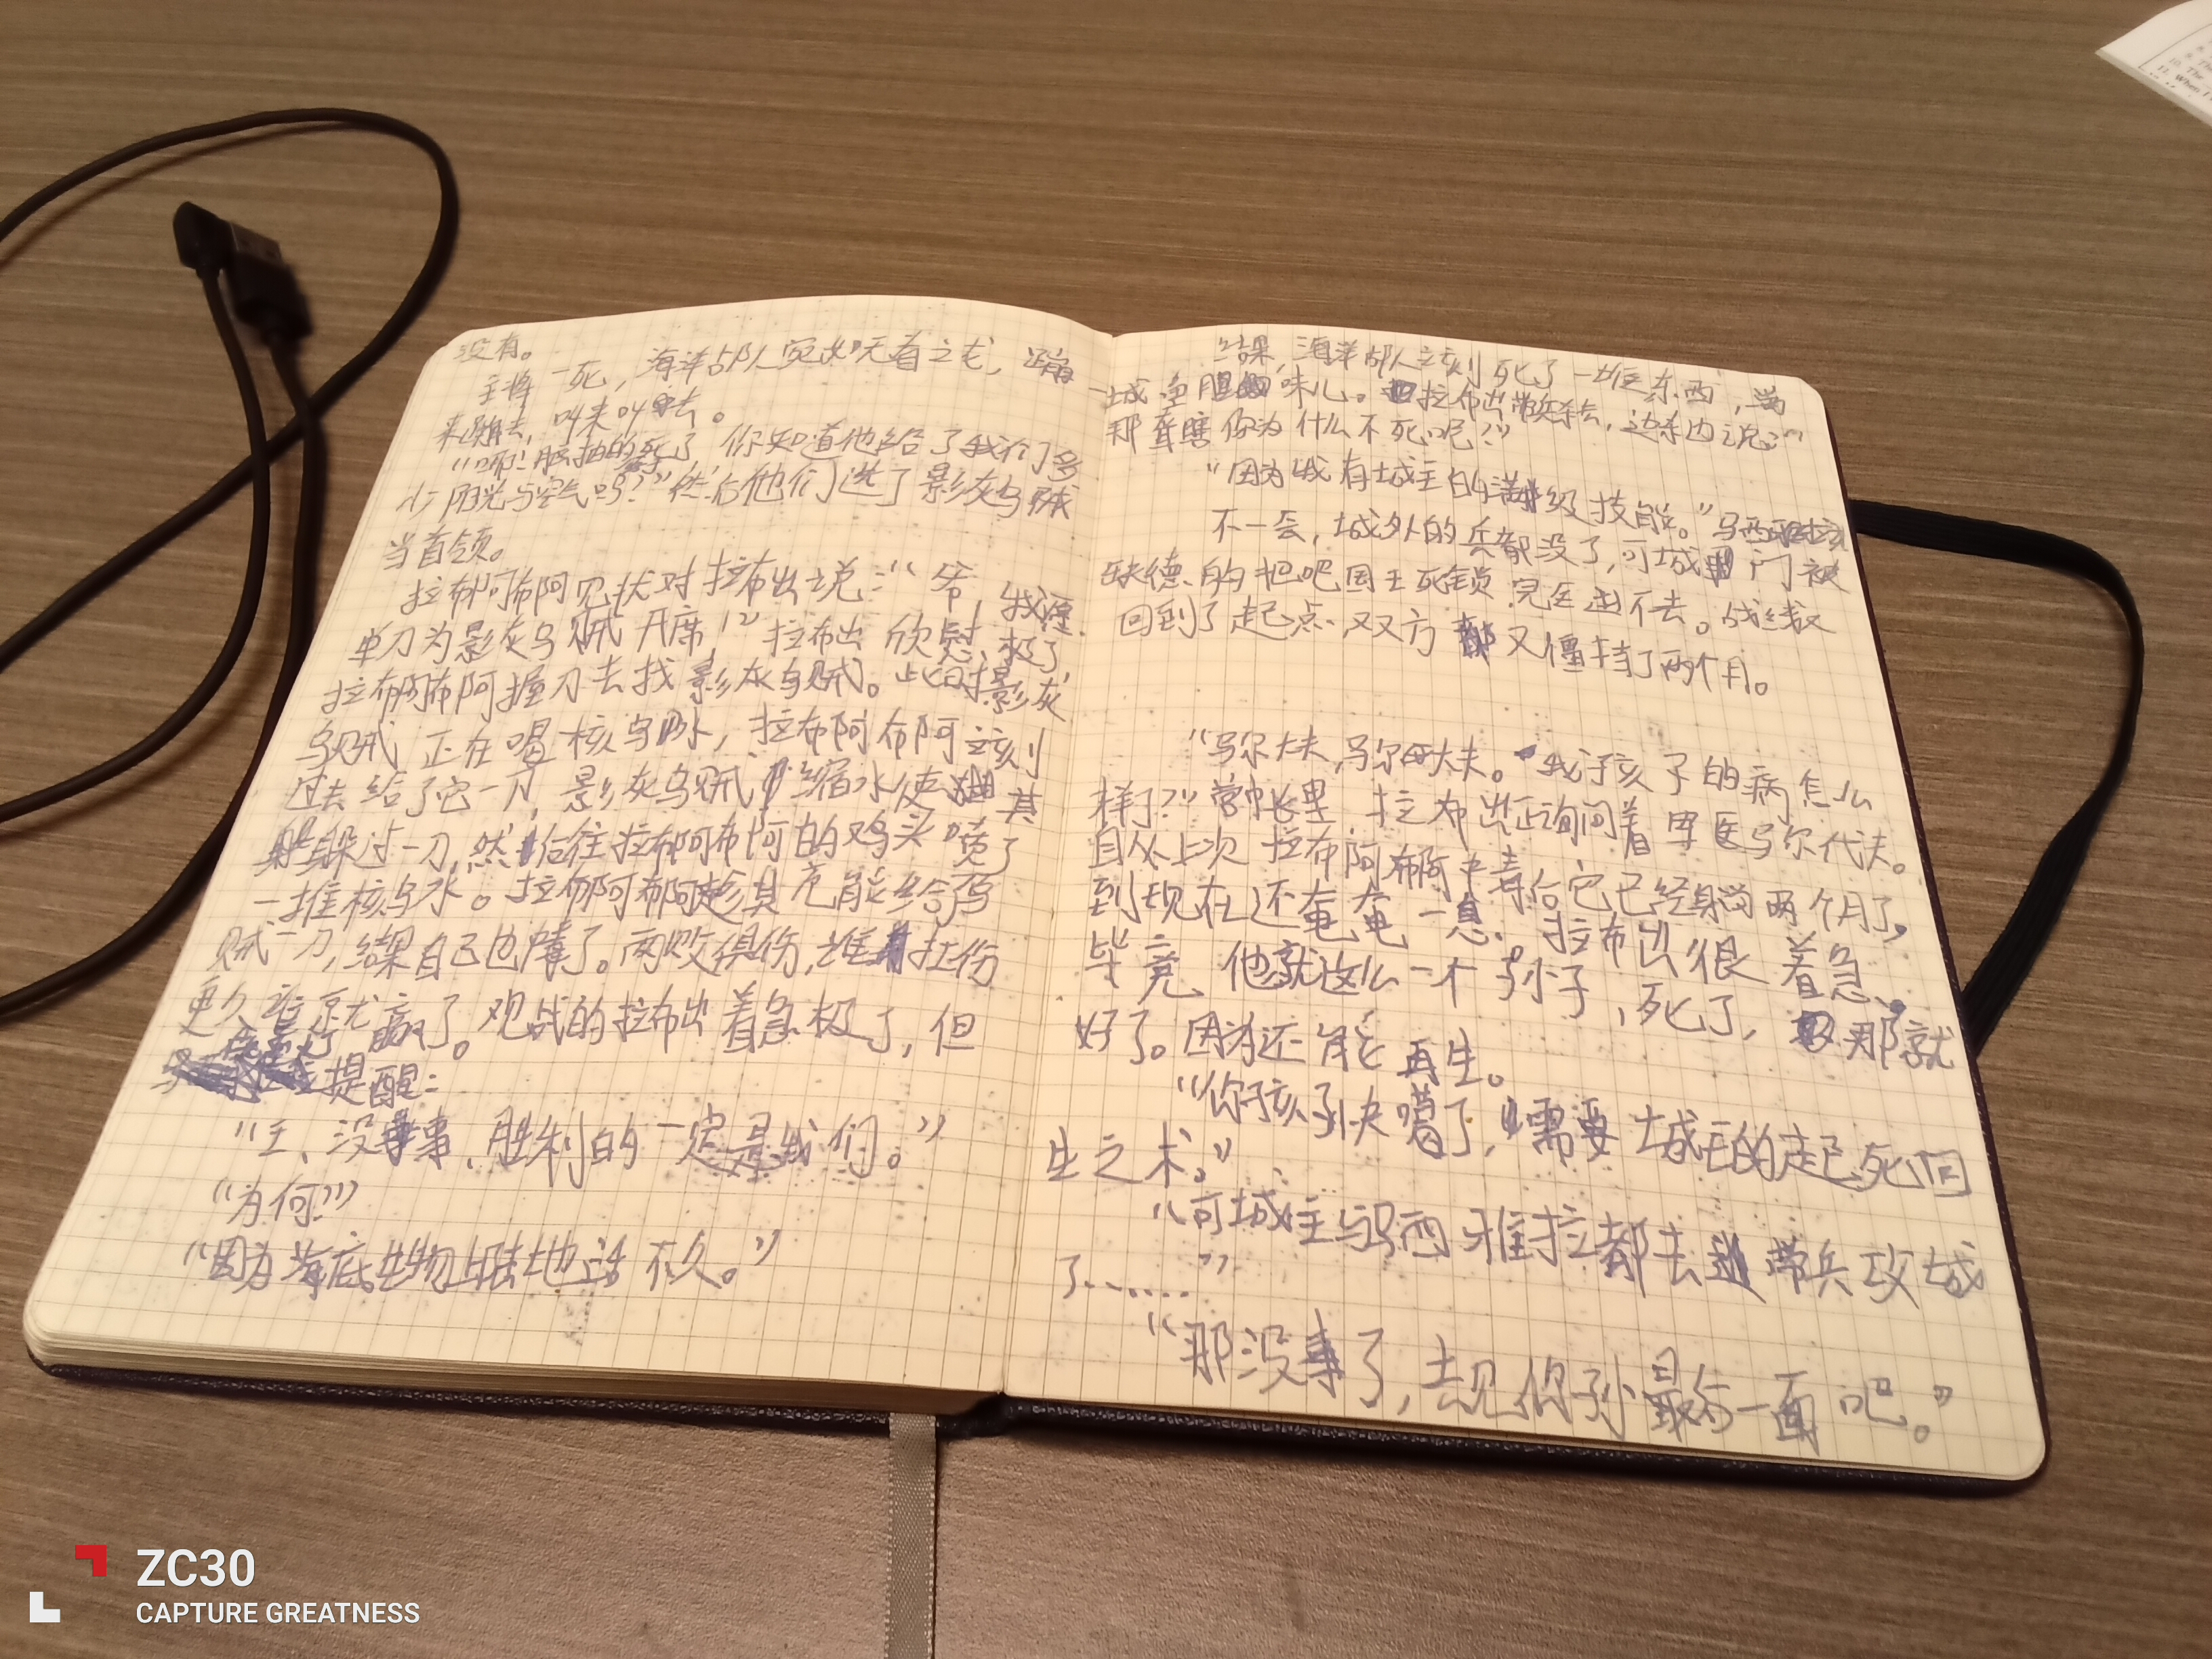 没有。
主将一死，海洋部人宛如天有之尤，蹦
来蹦去，叫来叫去。
“哪！脏抽的死了，你知道他给了我们多
少阳光与空气吗？”然后他们选了影灰乌贼
当首领。
拉布阿布阿见状对拉布出说：“爷，我愿
单刀为影灰乌贼开席！”拉布出欣慰极了，
拉布阿布阿握刀去找影灰乌贼。此时影灰
乌贼正在喝核乌水，拉布阿布阿立刻
过去给了它一刀，影灰乌贼缩水使其
躲过一刀，然后往拉布阿布阿的鸡头喷了
一堆核乌水。拉布阿布阿趁其充能给乌
贼一刀，结果自己也毒了。两败俱伤，谁扛伤
更久谁就赢了。观战的拉布出着急极了，但
提醒：
“王、没事，胜利的一定是我们。”
“为何？”
“因为海底生物上陆地活不久。”
结果，海洋部人立刻死了一堆东西，満
城鱼腥味儿。拉布出带兵杀去，边杀边说：“
那聋瞎你为什么不死呢？”
“因为我有城主的满级技能。”乌西雅拉
不一会，城外的兵都没了，可城门被
缺德的把吧国王死锁，完全进不去。战线又
回到了起点，双方又僵持了两个月。
“马尔大夫，马尔大夫。我孩子的病怎么
样了？”营帐里，拉布出正询问着军医马尔代夫。
自从上次拉布阿布阿中毒后它已经躺两个月了，
到现在还奄奄一息。拉布出很着急，
毕竟他就这么一个孙子，死了，那就
好了。因为还能再生。
“你孩子快嗝了，需要城主的起死回
生之术。”
“可城主与西雅拉都去带兵攻城
了……”
“那没事了，去见你孙最后一面吧。”
ZC30
CAPTURE GREATNESS